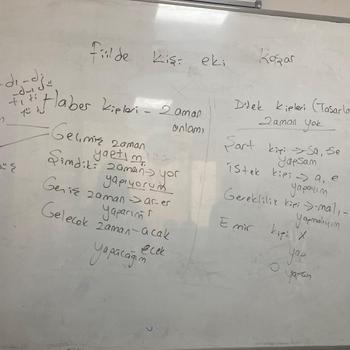 Fiilde kişi eki
-dı -di
Haber kipleri - zaman
anlamı
Geçmiş zaman
yaptım
Şimdiki zaman → yor
yapıyorum
Geniş zaman → ar-er
yaparım
Gelecek zaman - acak
ecek
yapacağım
Dilek kipleri (Tasarla
zaman yok
Şart kipi → sa, se
yapsam
istek kipi → a, e
yapayım
Gereklilik kipi → malı -
yapmalıyım
Emir kipi X
yap
O yapsın